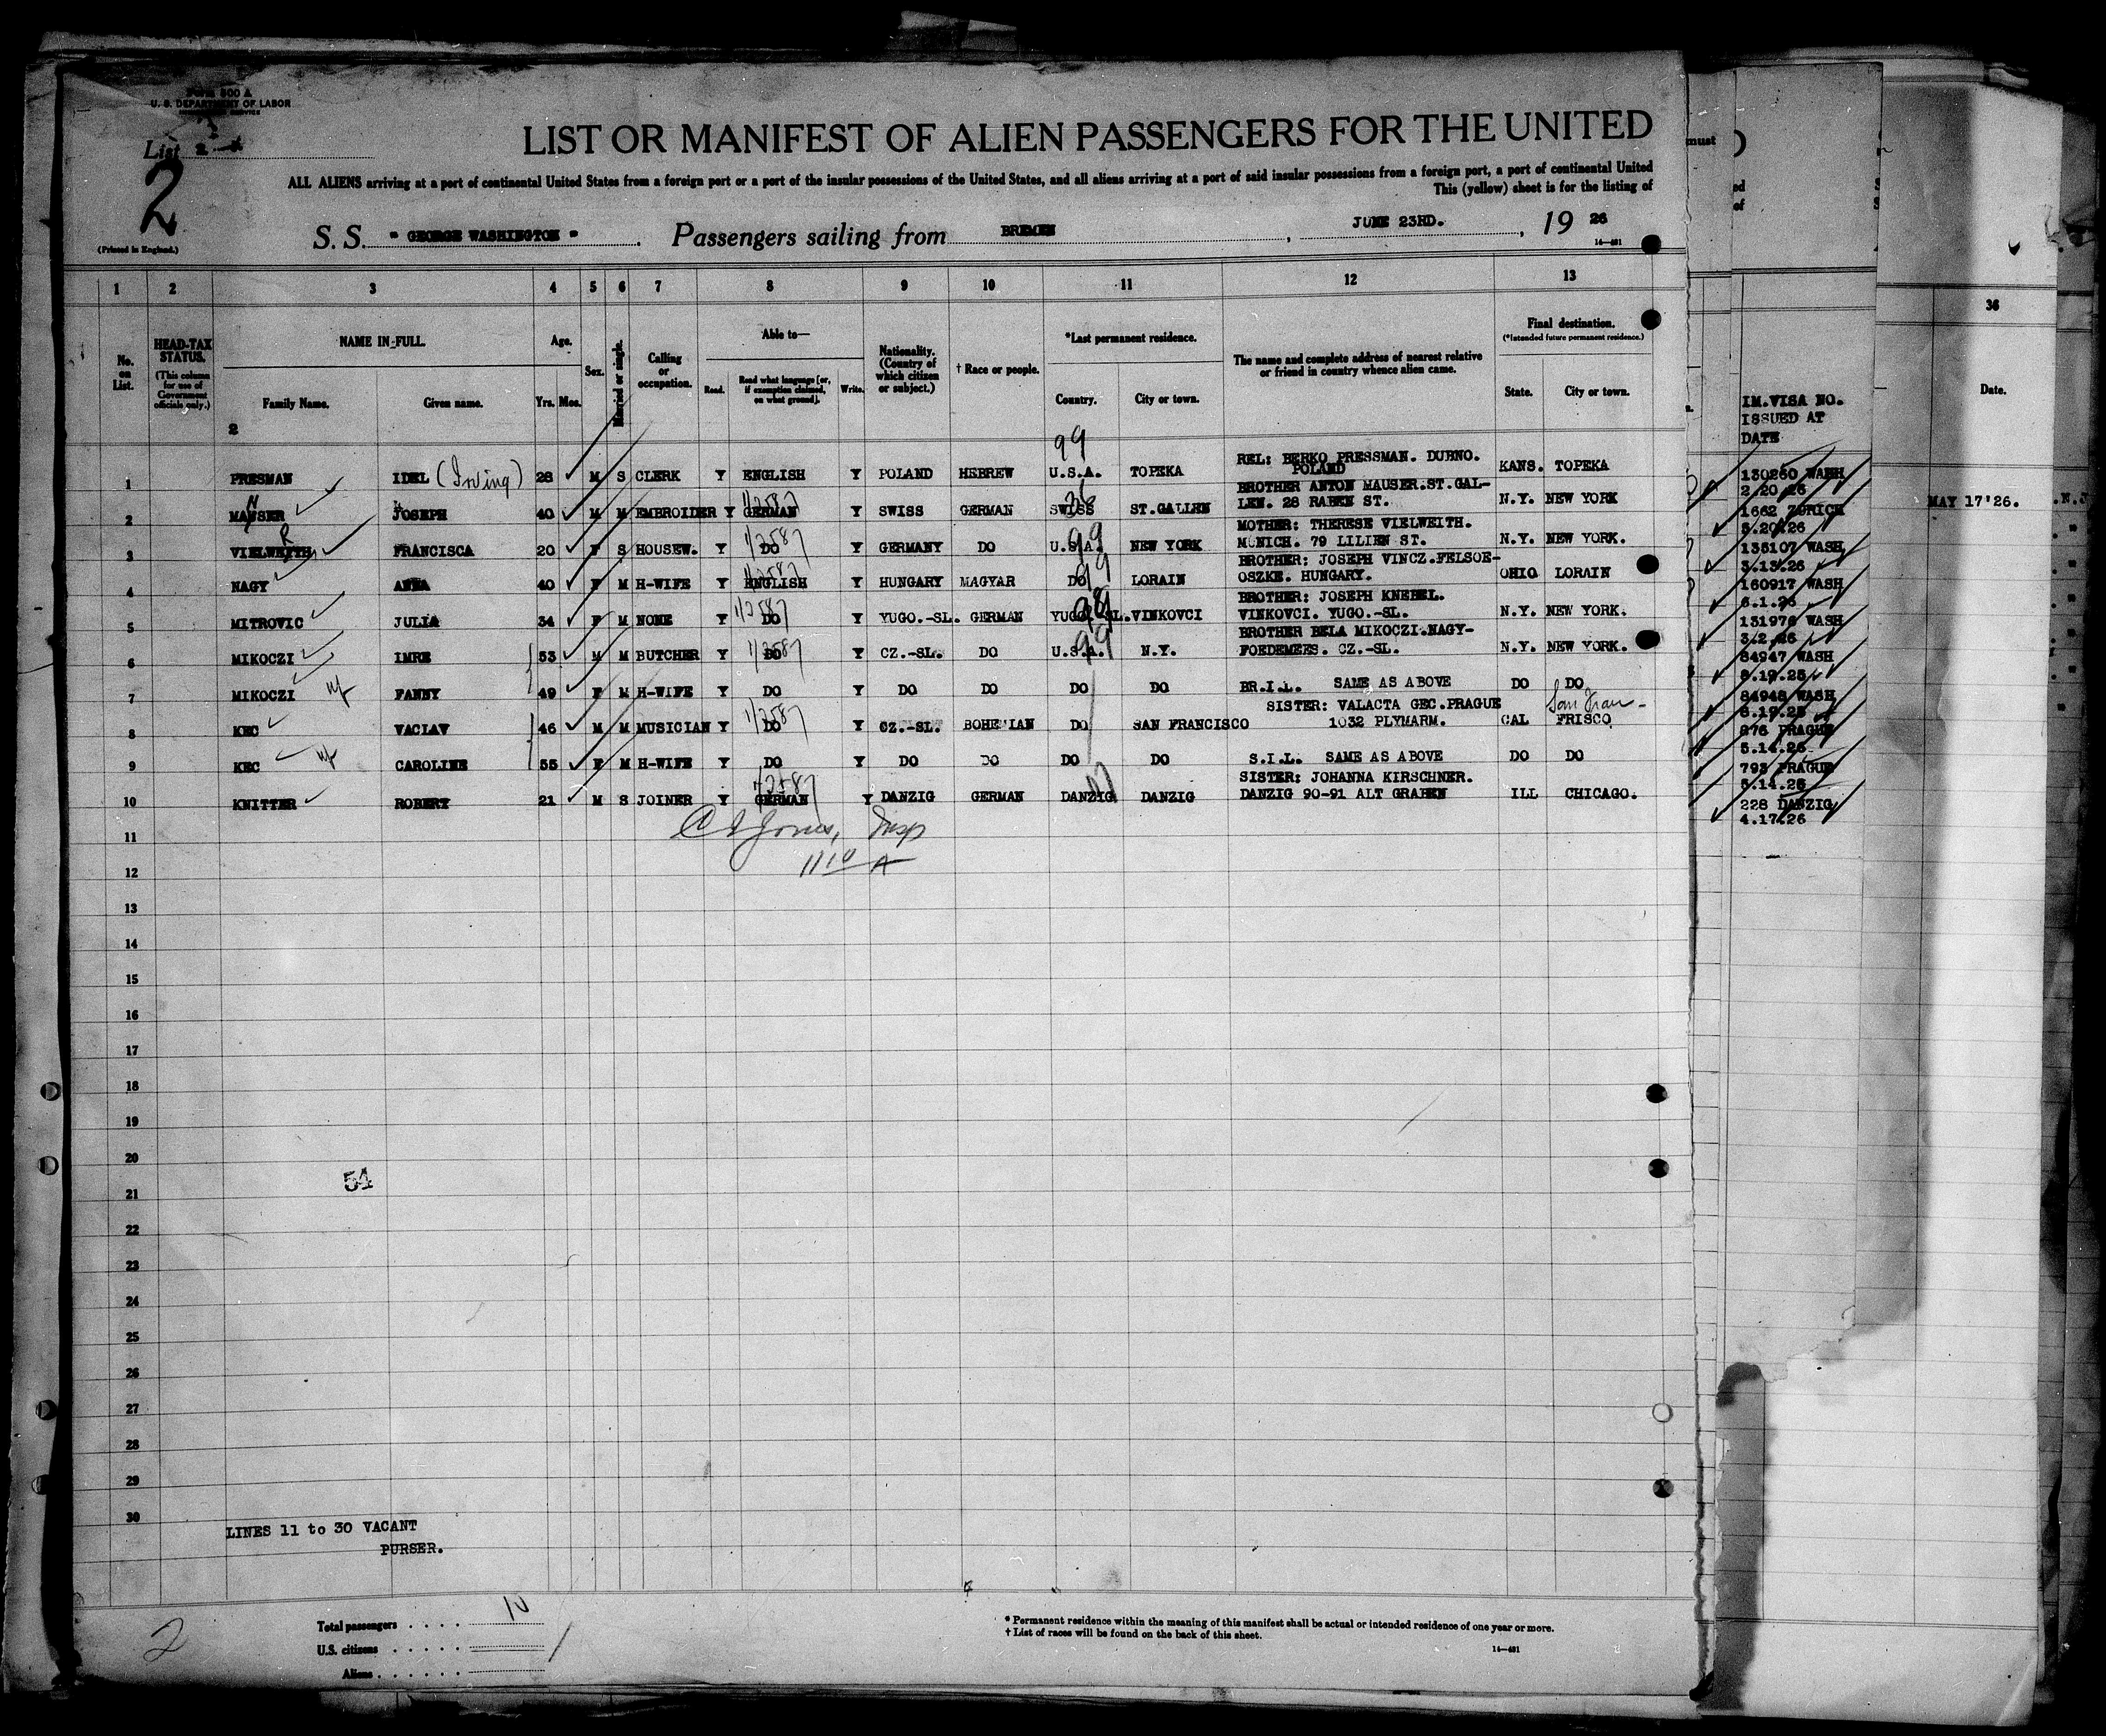 Form 500 A
U. S. DEPARTMENT OF LABOR
List 2
2
(Printed in England.)
LIST OR MANIFEST OF ALIEN PASSENGERS FOR THE UNITED
ALL ALIENS arriving at a port of continental United States from a foreign port or a port of the insular possessions of the United States, and all aliens arriving at a port of said insular possessions from a foreign port, a port of continental United
This (yellow) sheet is for the listing of
S. S. " GEORGE WASHINGTON " . Passengers sailing from BREMEN , JUNE 23RD. , 19 26
14—491
1 2 3 4 5 6 7 8 9 10 11 12 13
No. on List.
HEAD-TAX STATUS. (This column for use of Government officials only.)
NAME IN FULL.
Family Name. Given name.
Age.
Yrs. Mos.
Sex.
Married or single.
Calling or occupation.
Able to—
Read. Read what language [or, if exemption claimed, on what ground]. Write.
Nationality. (Country of which citizen or subject.)
† Race or people.
*Last permanent residence.
Country. City or town.
The name and complete address of nearest relative or friend in country whence alien came.
Final destination. (*Intended future permanent residence.)
State. City or town.
2
99
1 PRESMAN IDEL (Irving) 28 M S CLERK Y ENGLISH Y POLAND HEBREW U.S.A. TOPEKA REL: BERKO PRESSMAN. DUBNO. POLAND KANS. TOPEKA
2 MAUSER JOSEPH 40 M M EMBROIDER Y GERMAN Y SWISS GERMAN SWISS ST.GALLEN BROTHER ANTON MAUSER.ST.GAL- LEN. 28 RABEN ST. N.Y. NEW YORK
3 VIELWEITH FRANCISCA 20 F S HOUSEW. Y DO Y GERMANY DO U.S.A. NEW YORK MOTHER: THERESE VIELWEITH. MUNICH. 79 LILIEN ST. N.Y. NEW YORK.
4 NAGY ANNA 40 F M H-WIFE Y ENGLISH Y HUNGARY MAGYAR DO LORAIN BROTHER: JOSEPH VINCZ.FELSOE- OSZKE. HUNGARY. OHIO LORAIN
5 MITROVIC JULIA 34 F M NONE Y DO Y YUGO.-SL. GERMAN YUGO.-SL. VINKOVCI BROTHER: JOSEPH KNEBEL. VINKOVCI. YUGO.-SL. N.Y. NEW YORK.
6 MIKOCZI IMRE 53 M M BUTCHER Y DO Y CZ.-SL. DO U.S.A. N.Y. BROTHER BELA MIKOCZI.NAGY- FOEDEMES. CZ.-SL. N.Y. NEW YORK.
7 MIKOCZI wf FANNY 49 F M H-WIFE Y DO Y DO DO DO DO BR.I.L. SAME AS ABOVE DO DO
8 KEC VACLAV 46 M M MUSICIAN Y DO Y CZ.-SL. BOHEMIAN DO SAN FRANCISCO SISTER: VALACTA GEC.PRAGUE 1032 PLYNARM. CAL San Fran- FRISCO
9 KEC wf CAROLINE 55 F M H-WIFE Y DO Y DO DO DO DO S.I.L. SAME AS ABOVE DO DO
10 KNITTER ROBERT 21 M S JOINER Y GERMAN Y DANZIG GERMAN DANZIG DANZIG SISTER: JOHANNA KIRSCHNER. DANZIG 90-91 ALT GRABEN ILL CHICAGO.
Jones, Insp
11
12
13
14
15
16
17
18
19
20
54
21
22
23
24
25
26
27
28
29
30
LINES 11 to 30 VACANT
PURSER.
2
Total passengers . . . . 10
U.S. citizens . . . . .
Aliens . . . . . .
* Permanent residence within the meaning of this manifest shall be actual or intended residence of one year or more.
† List of races will be found on the back of this sheet.
14—491
must
ed
of
IM.VISA NO.
ISSUED AT
DATE
130260 WASH
2.20.26
1662 ZURICH
5.20.26
135107 WASH
3.13.26
160917 WASH
6.1.26
131976 WASH
3.2.26
84947 WASH
8.19.25
84948 WASH
8.19.25
876 PRAGUE
5.14.26
793 PRAGUE
5.14.26
228 DANZIG
4.17.26
36
Date.
MAY 17'26.